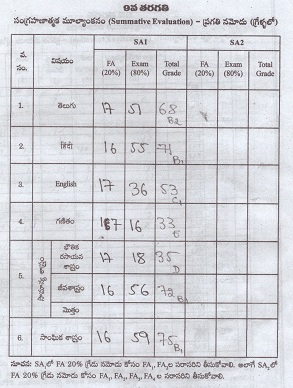 9వ తరగతి
సంగ్రహణాత్మక మూల్యాంకనం (Summative Evaluation) – ప్రగతి నమోదు (గ్రేడ్లలో)
వ. సం. విషయం SA1 SA2
FA (20%) Exam (80%) Total Grade FA (20%) Exam (80%) Total Grade
1. తెలుగు 17 51 68 B2
2. हिंदी 16 55 71 B1
3. English 17 36 53 C1
4. గణితం 16 33 E
5. సామాన్య శాస్త్రం
భౌతిక రసాయన శాస్త్రం 17 18 35 D
జీవశాస్త్రం 16 56 72 B1
మొత్తం
6. సాంఘిక శాస్త్రం 16 59 75 B1
సూచన: SA1లో FA 20% గ్రేడు నమోదు కోసం FA1, FA2ల సరాసరిని తీసుకోవాలి. అలాగే SA2లో
FA 20% గ్రేడు నమోదు కోసం FA1, FA2, FA3, FA4 ల సరాసరిని తీసుకోవాలి.